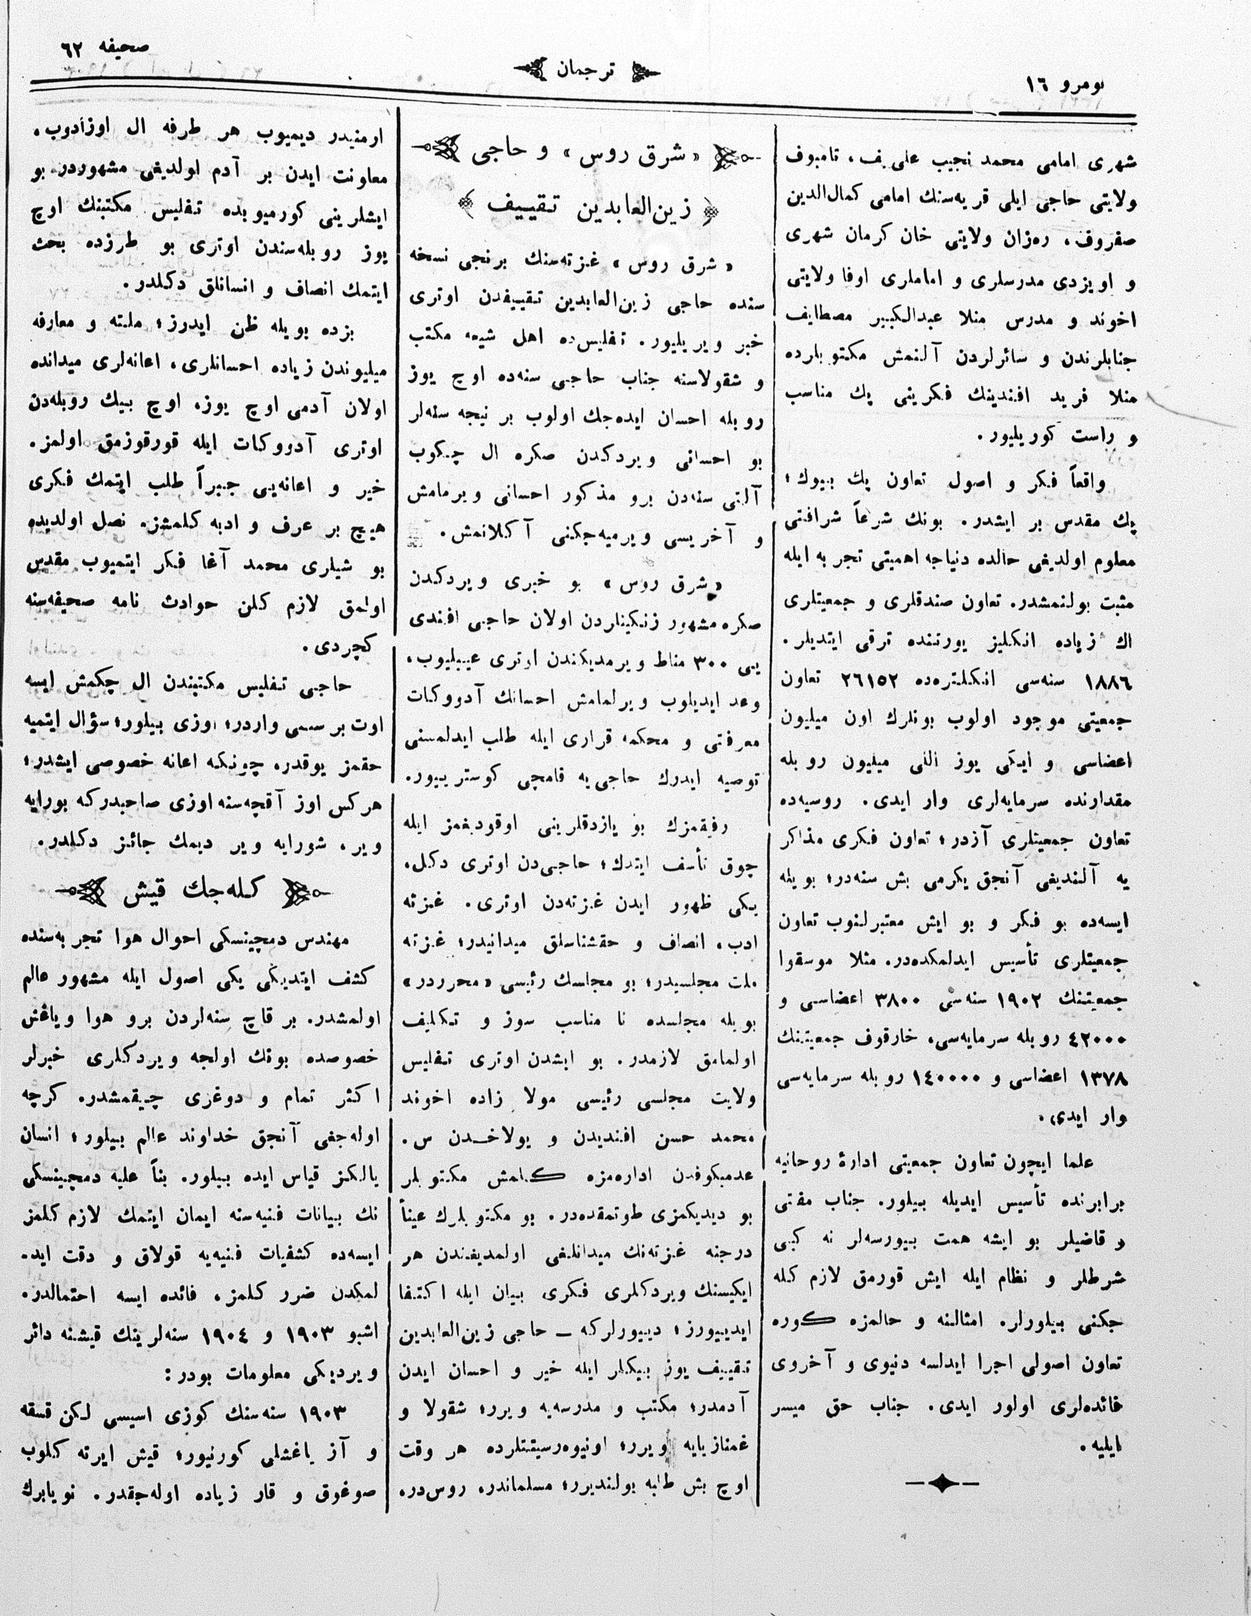 نومرو ١٦
ترجمان
صحيفه ٦٢
شهرى امامى محمد نجيب على يف، تامبوف
ولايتى حاجى ايلى قريه‌سنك امامى كمال‌الدين
صفروف، ره‌زان ولايتى خان كرمان شهرى
و اويزدى مدرسلرى و اماملرى اوفا ولايتى
اخوند و مدرس منلا عبدالكبير مصطايف
جنابلرندن و سائرلردن آلنمش مكتوبلرده
منلا فريد افندينك فكرينى پك مناسب
و راست كوريليور.
واقعاً فكر و اصول تعاون پك بيوك؛
پك مقدس بر ايشدر. بونك شرعاً شرافتى
معلوم اولديغى حالده دنياجه اهميتى تجربه ايله
مثبت بولنمشدر. تعاون صندقلرى و جمعيتلرى
اك زياده انكليز يورتنده ترقى ايتديلر.
١٨٨٦ سنه‌سى انكلتره‌ده ٢٦١٥٢ تعاون
جمعيتى موجود اولوب بونلرك اون ميليون
اعضاسى و ايكى يوز اللى ميليون روبله
مقدارنده سرمايه‌لرى وار ايدى. روسيه‌ده
تعاون جمعيتلرى آزدر؛ تعاون فكرى مذاكر
يه آلنديغى آنجق يكرمى بش سنه‌در؛ بويله
ايسه‌ده بو فكر و بو ايش معتبرلنوب تعاون
جمعيتلرى تأسيس ايدلمكده‌در. مثلا موسقوا
جمعيتنك ١٩٠٢ سنه‌سى ٣٨٠٠ اعضاسى و
٤٢٠٠٠ روبله سرمايه‌سى، خارقوف جمعيتينك
١٣٧٨ اعضاسى و ١٤٠٠٠٠ روبله سرمايه‌سى
وار ايدى.
علما ايچون تعاون جمعيتى ادارهٔ روحانيه
برابرنده تأسيس ايديله بيلور. جناب مفتى
و قاضيلر بو ايشه همت بيورسه‌لر نه كبى
شرطلر و نظام ايله ايش قورمق لازم كله
جكنى بيلورلر. امثالنه و حالمزه كوره
تعاون اصولى اجرا ايدلسه دنيوى و آخروى
فائده‌لرى اولور ايدى. جناب حق ميسر
ايليه.
«شرق روس» و حاجى
زين‌العابدين تقييف
«شرق روس» غزته‌سنك برنجى نسخه
سنده حاجى زين‌العابدين تقييفدن اوترى
خبر ويريليور. تفليس‌ده اهل شيعه مكتب
و شقولاسنه جناب حاجى سنه‌ده اوچ يوز
روبله احسان ايده‌جك اولوب بر نيجه سنه‌لر
بو احسانى ويردكدن صكره ال چكوب
آلتى سنه‌دن برو مذكور احسانى ويرمامش
و آخريسى ويرميه‌جكنى آكلانمش.
«شرق روس» بو خبرى ويردكدن
صكره مشهور زنكينلردن اولان حاجى افندى
يى ٣٠٠ مناط ويرمديكندن اوترى عيبليوب،
وعد ايديلوب ويرلمامش احسانك آدووكات
معرفتى و محكمه قرارى ايله طلب ايدلمسنى
توصيه ايدرك حاجى‌يه قامچى كوستريبور.
رفيقمزك بو يازدقلرينى اوقوديغمز ايله
چوق تأسف ايتدك؛ حاجى‌دن اوترى دكل،
يكى ظهور ايدن غزته‌دن اوترى. غزته
ادب، انصاف و حقشناسلق ميدانيدر؛ غزته
ملت مجلسيدر؛ بو مجلسك رئيسى «محرردر»
بويله مجلسده نا مناسب سوز و تكليف
اولمامق لازمدر. بو ايشدن اوترى تفليس
ولايت مجلسى رئيسى مولا زاده اخوند
محمد حسن افنديدن و يولاخدن س.
عدمبكوفدن اداره‌مزه كلمش مكتوبلر
بو ديديكمزى طوتمقده‌در. بو مكتوبلرك عيناً
درجنه غزته‌نك ميدانلغى اولمديغندن هر
ايكيسنك ويردكلرى فكرى بيان ايله اكتفا
ايديبورز؛ ديبورلركه — حاجى زين‌العابدين
تقييف يوز بيكلر ايله خير و احسان ايدن
آدمدر؛ مكتب و مدرسه‌يه ويرر؛ شقولا و
غمنازيايه ويرر؛ اونيوه‌رسيتتلرده هر وقت
اوچ بش طلبه بولنديرر؛ مسلماندر، روس‌در،
ارمنيدر ديميوب هر طرفه ال اوزادوب،
معاونت ايدن بر آدم اولديغى مشهوردر. بو
ايشلرينى كورميوبده تفليس مكتبنك اوچ
يوز روبله‌سندن اوترى بو طرزده بحث
ايتمك انصاف و انسانلق دكلدر.
بزده بويله ظن ايدرز؛ ملته و معارفه
ميليوندن زياده احسانلرى، اعانه‌لرى ميدانده
اولان آدمى اوچ يوز، اوچ بيك روبله‌دن
اوترى آدووكات ايله قورقوزمق اولمز.
خير و اعانه‌يى جبراً طلب ايتمك فكرى
هيچ بر عرف و ادبه كلمشز. نصل اولديده
بو شيلرى محمد آغا فكر ايتميوب مقدس
اولمق لازم كلن حوادث نامه صحيفه‌سنه
كچردى.
حاجى تفليس مكتبندن ال چكمش ايسه
اوت بر سببى واردر؛ اوزى بيلور؛ سؤال ايتميه
حقمز يوقدر. چونكه اعانه خصوصى ايشدر؛
هركس اوز آقچه‌سنه اوزى صاحبدركه بورايه
وير، شورايه وير ديمك جائز دكلدر.
كله‌جك قيش
مهندس دمچينسكى احوال هوا تجربه‌سنده
كشف ايتديكى يكى اصول ايله مشهور عالم
اولمشدر. بر قاچ سنه‌لردن برو هوا وياغش
خصوصده بونك اولجه ويردكلرى خبرلر
اكثر تمام و دوغرى چيقمشدر. كرچه
اوله‌جغى آنجق خداوند عالم بيلور؛ انسان
يالكز قياس ايده بيلور. بناً عليه دمچينسكى
نك بيانات فنيه‌سنه ايمان ايتمك لازم كلمز
ايسه‌ده كشفيات فنيه‌يه قولاق و دقت ايد.
لمكدن ضرر كلمز، فائده ايسه احتمالدر.
اشبو ١٩٠٣ و ١٩٠٤ سنه‌لرينك قيشنه دائر
ويرديكى معلومات بودر:
١٩٠٣ سنه‌سنك كوزى اسيسى لكن قسقه
و آز ياغشلى كورنيور؛ قيش ايرته كلوب
صوغوق و قار زياده اوله‌جقدر. نويابرك